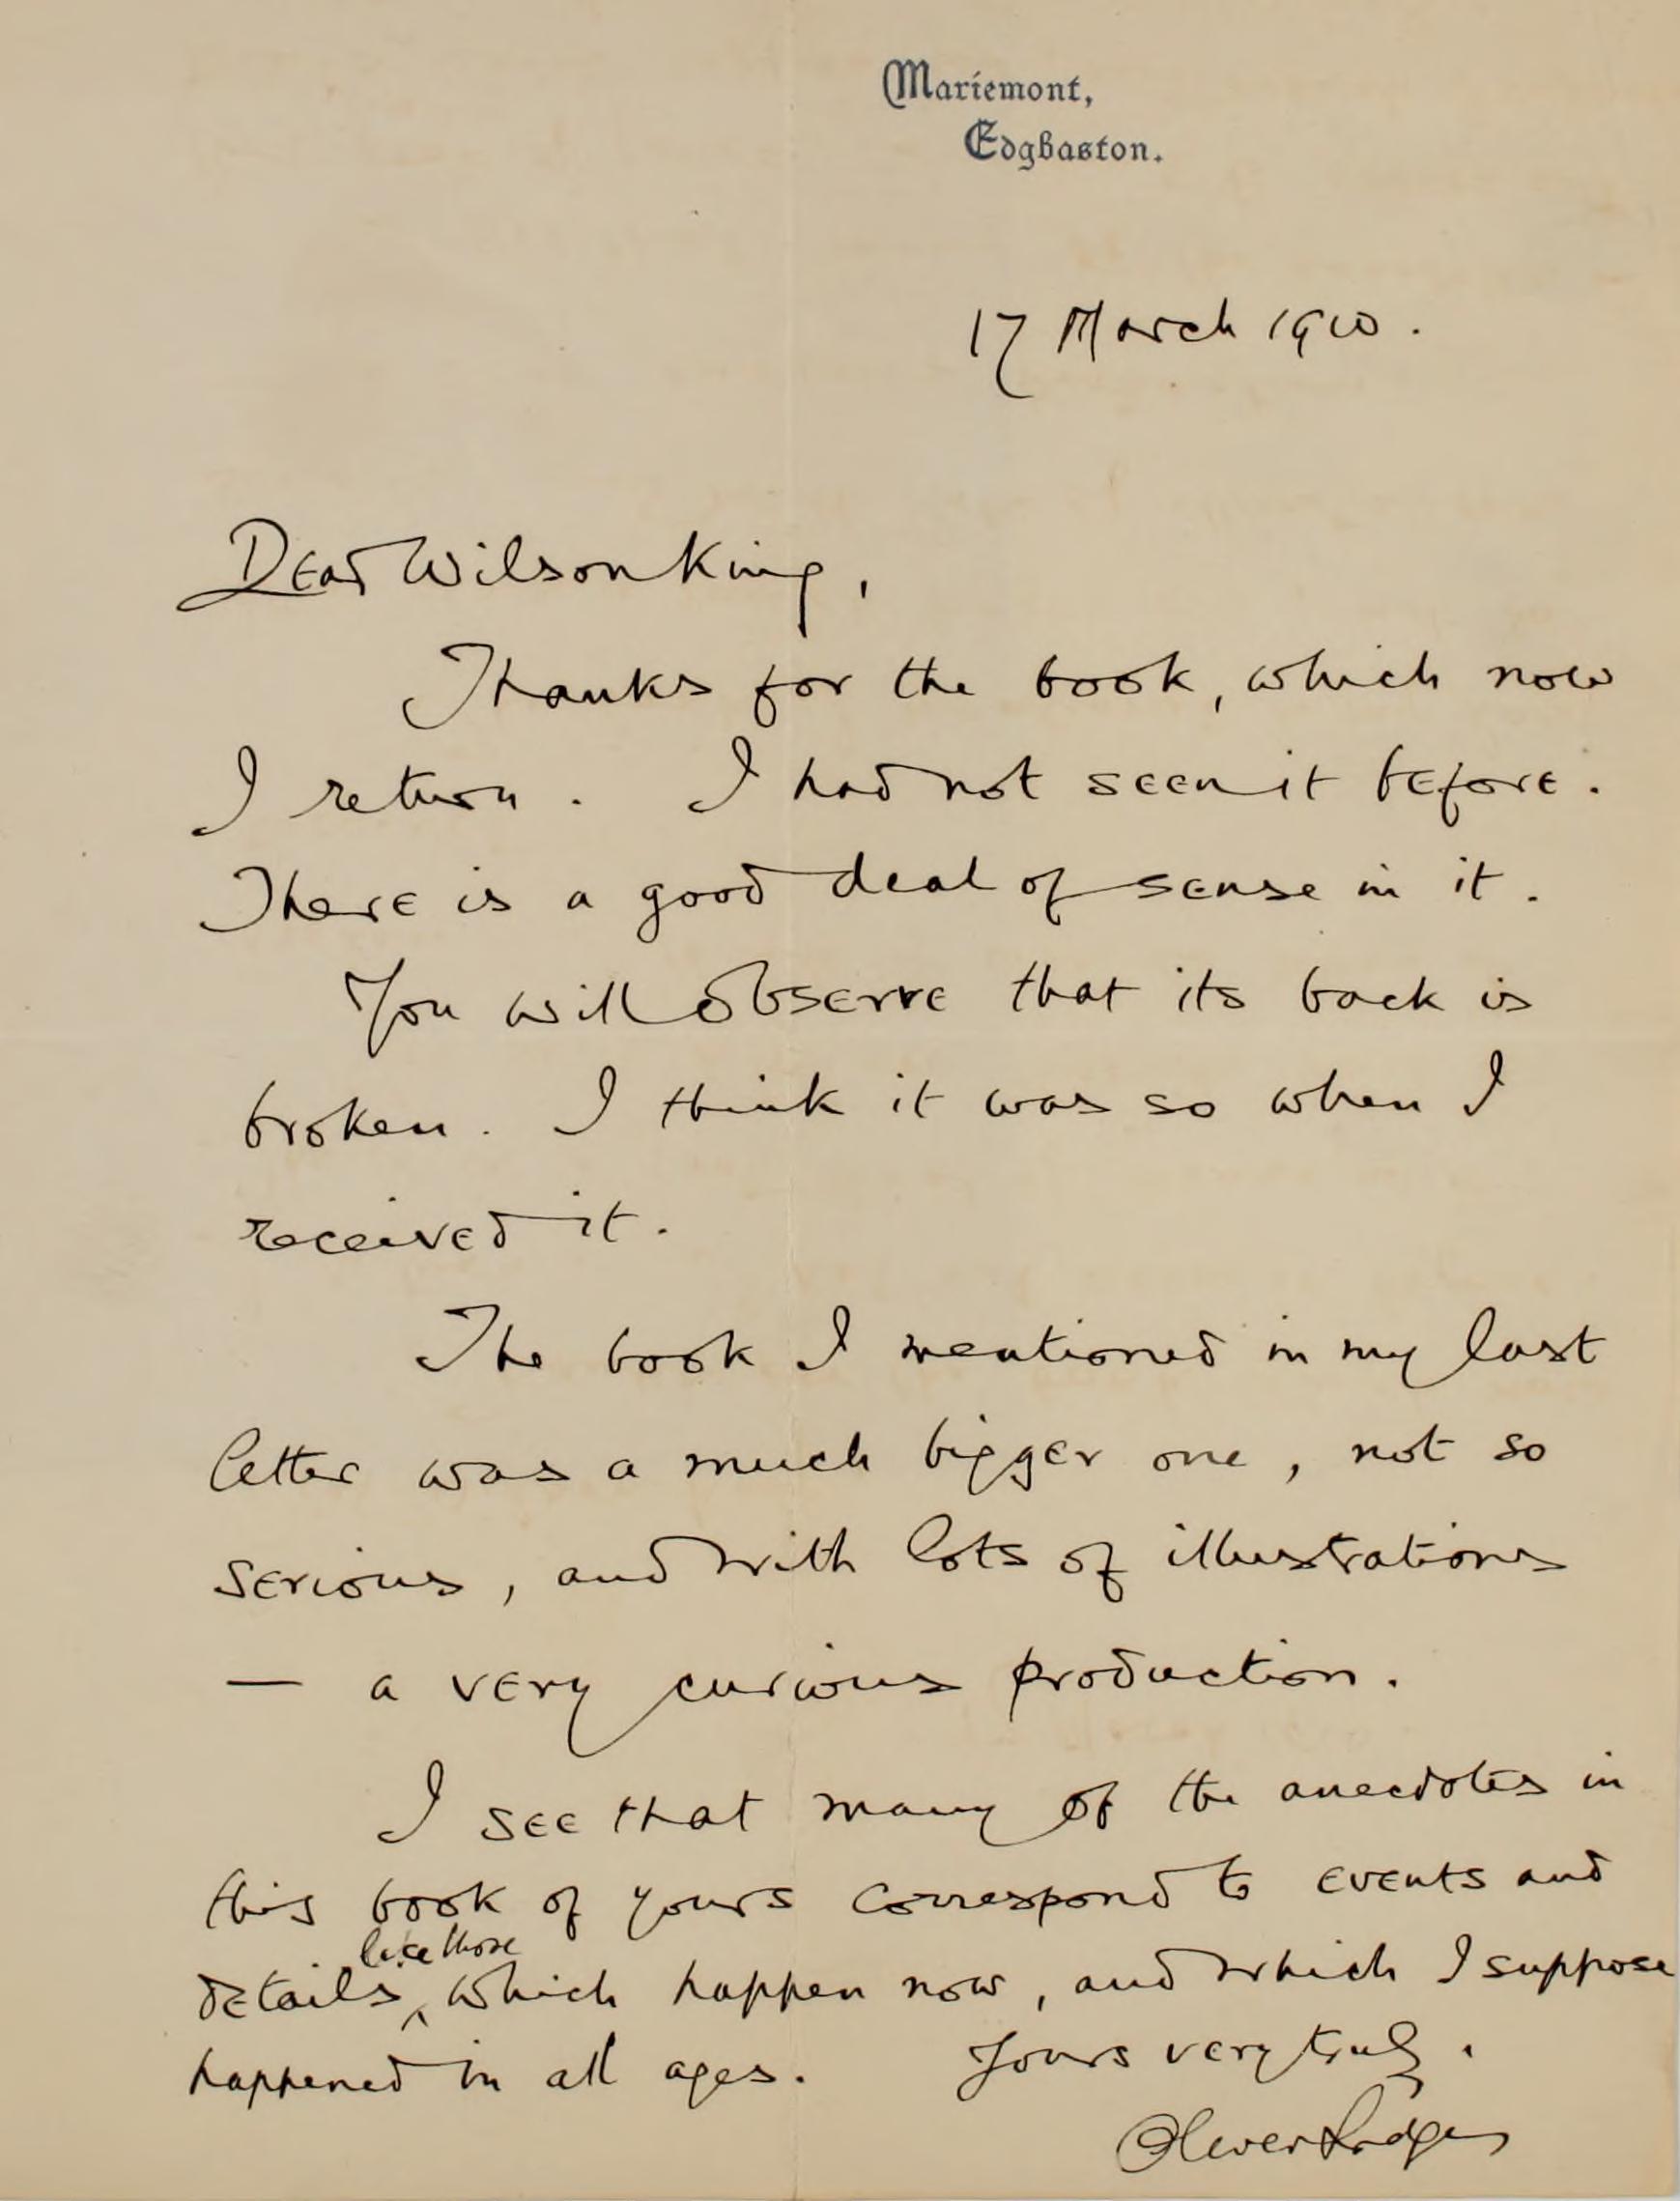 Mariemont,
Edgbaston.
17 March 1910.
Dear Wilson King,
Thanks for the book, which now
I return. I had not seen it before.
There is a good deal of sense in it.
You will observe that its back is
broken. I think it was so when I
received it.
The book I mentioned in my last
letter was a much bigger one, not so
serious, and with lots of illustrations
— a very curious production.
I see that many of the anecdotes in
this book of yours correspond to events and
like those
details ‸ which happen now, and which I suppose
happened in all ages. Yours very truly.
Oliver Lodge